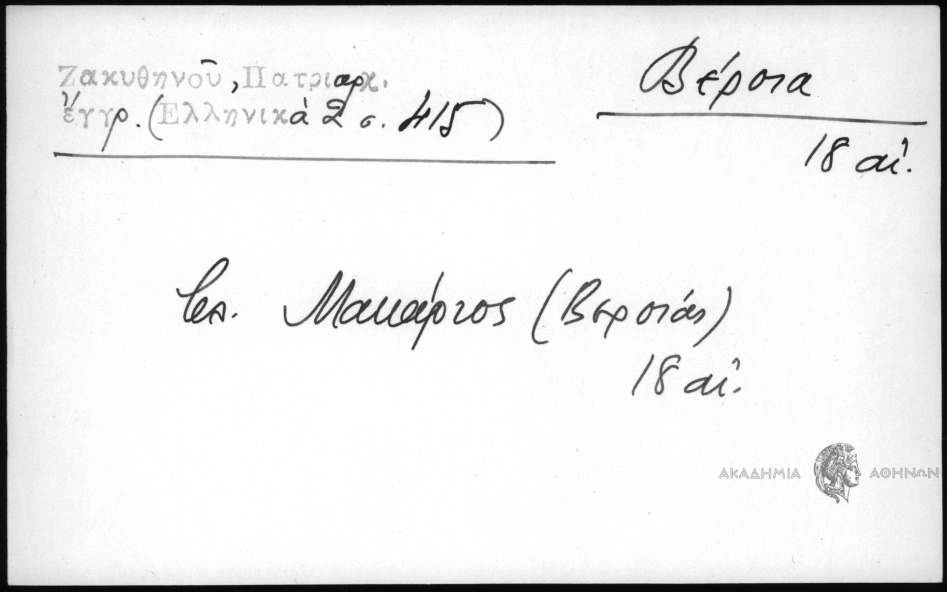 Ζακυθηνοῦ, Πατριαρχ.
ἔγγρ. (Ἑλληνικὰ 2 σ. 415)
Βέροια
18 αἰ.
Μακάριος (Βεροιάς)
18 αἰ.
ΑΚΑΔΗΜΙΑ ΑΘΗΝΩΝ